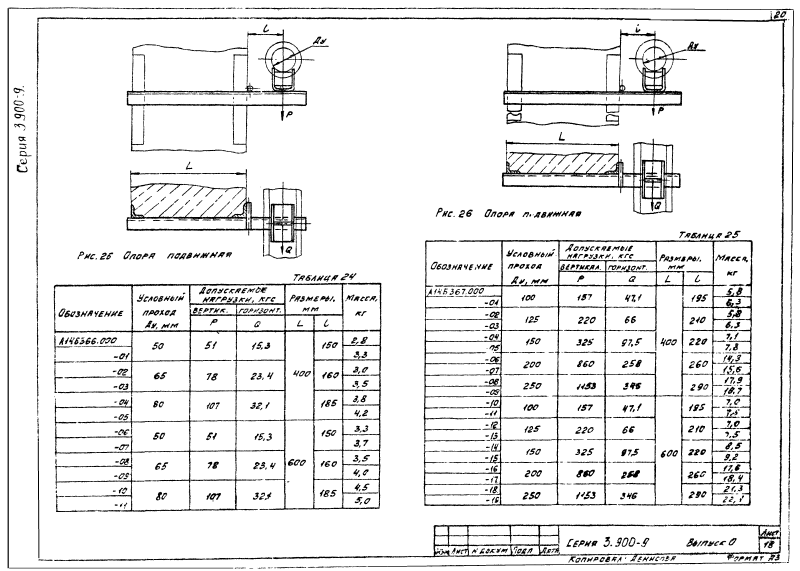 20
Серия 3.900-9.
L
Ду
P
L
Q
Рис. 25 Опора подвижная
Таблица 24
Обозначение
Условный проход Ду, мм
Допускаемые нагрузки, кгс
Размеры, мм
Масса, кг
вертик. P
горизонт. Q
L
l
А14Б366.000 50 51 15,3 400 150 2,8
-01 3,3
-02 65 78 23,4 160 3,0
-03 3,5
-04 80 107 32,1 185 3,8
-05 4,2
-06 50 51 15,3 600 150 3,3
-07 3,7
-08 65 78 23,4 160 3,5
-09 4,0
-10 80 107 32,1 185 4,5
-11 5,0
l
Ду
P
L
Q
Рис. 26 Опора подвижная
Таблица 25
Обозначение
Условный проход Ду, мм
Допускаемые нагрузки, кгс
Размеры, мм
Масса, кг
вертикал. P
горизонт. Q
L
l
А14Б367.000 100 157 47,1 400 195 5,8
-01 6,3
-02 125 220 66 210 5,8
-03 6,3
-04 150 325 97,5 220 7,1
-05 7,8
-06 200 860 258 260 14,9
-07 15,6
-08 250 1153 346 290 17,9
-09 18,7
-10 100 157 47,1 600 195 7,0
-11 7,5
-12 125 220 66 210 7,0
-13 7,5
-14 150 325 97,5 220 8,5
-15 9,2
-16 200 860 258 260 17,6
-17 18,4
-18 250 1153 346 290 21,3
-19 22,1
Изм Лист N докум Подп Дата
Серия 3.900-9 Выпуск 0
Лист
18
Копировал: Денисова Формат А3